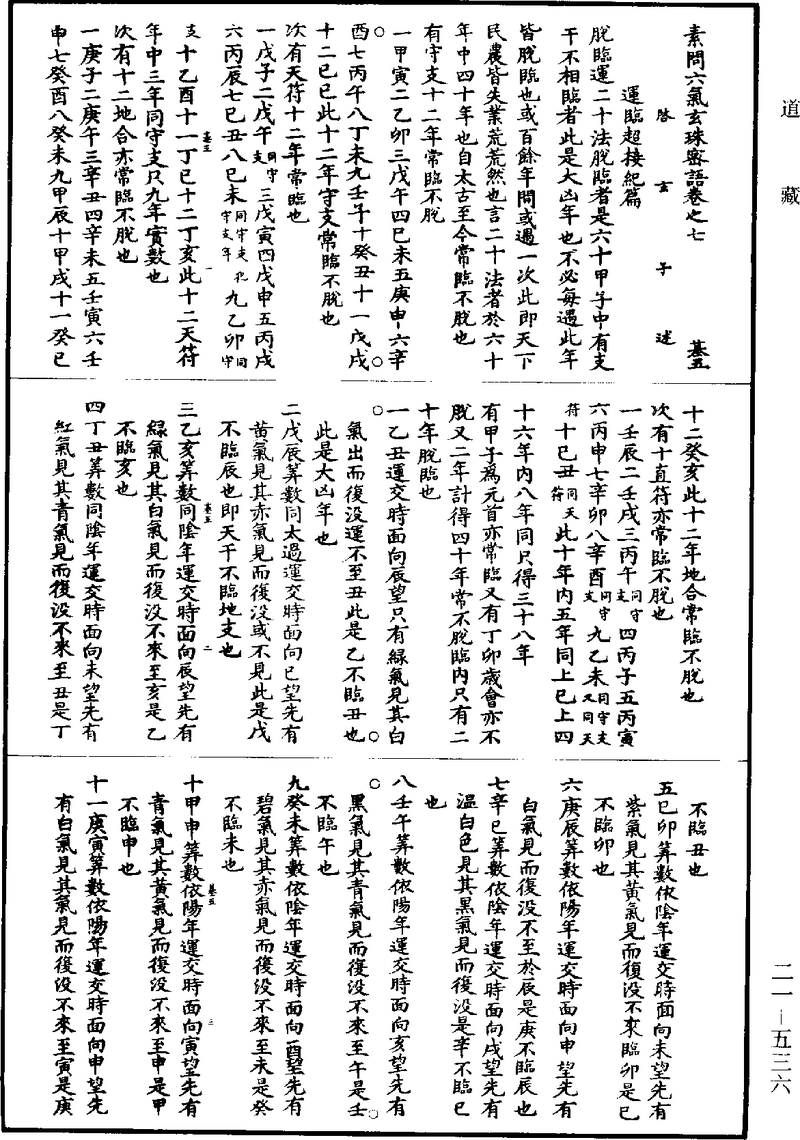 道藏
素問六氣玄珠密語卷之七　基五
啓玄子述
運臨超接紀篇
脫臨運二十法脫臨者是六十甲子中有支
干不相臨者此是大凶年也不必每遇此年
皆脫臨也或百餘年間或遇一次此即天下
民農皆失業荒荒然也言二十法者於六十
年中四十年也自太古至今常臨不脫也
有守支十二年常臨不脫
一甲寅二乙卯三戊午四巳未五庚申六辛
酉七丙午八丁未九壬子十癸丑十一戊戌
十二巳巳此十二年守支常臨不脫也
次有天符十二年常臨也
一戊子二戊午同守支三戊寅四戊申五丙戌
六丙辰七巳丑八巳未同守支巳守支年九乙卯同守
支十乙酉十一丁巳十二丁亥此十二天符
年中三年同守支只九年實數也
次有十二地合亦常臨不脫也
一庚子二庚午三辛丑四辛未五壬寅六壬
申七癸酉八癸未九甲辰十甲戌十一癸巳
十二癸亥此十二年地合常臨不脫也
次有十直符亦常臨不脫也
一壬辰二壬戌三丙午同守支四丙子五丙寅
六丙申七辛卯八辛酉同守支九乙未同守支又同天
符十巳丑同天符此十年內五年同上巳上四
十六年內八年同只得三十八年
有甲子爲元首亦常臨又有丁卯歲會亦不
脫又二年計得四十年常不脫臨內只有二
十年脫臨也
一乙丑運交時面向辰望只有綠氣見其白
氣出而復没運不至丑此是乙不臨丑也
此是大凶年也
二戊辰筭數同太過運交時面向巳望先有
黄氣見其赤氣見而復没或不見此是戊
不臨辰也即天干不臨地支也
三乙亥筭數同陰年運交時面向辰望先有
綠氣見其白氣見而復没不來至亥是乙
不臨亥也
四丁丑筭數同陰年運交時面向未望先有
紅氣見其青氣見而復没不來至丑是丁
不臨丑也
五巳卯筭數依陰年運交時面向未望先有
紫氣見其黄氣見而復没不來臨卯是巳
不臨卯也
六庚辰筭數依陽年運交時面向申望先有
白氣見而復没不至於辰是庚不臨辰也
七辛巳筭數依陰年運交時面向戌望先有
溫白色見其黑氣見而復没是辛不臨巳
也
八壬午筭數依陽年運交時面向亥望先有
黑氣見其青氣見而復没不來至午是壬
不臨午也
九癸未筭數依陰年運交時面向酉望先有
碧氣見其赤氣見而復没不來至未是癸
不臨未也
十甲申筭數依陽年運交時面向寅望先有
青氣見其黄氣見而復没不來至申是甲
不臨申也
十一庚寅筭數依陽年運交時面向申望先
有白氣見其氣見而復没不來至寅是庚
二一—五三六